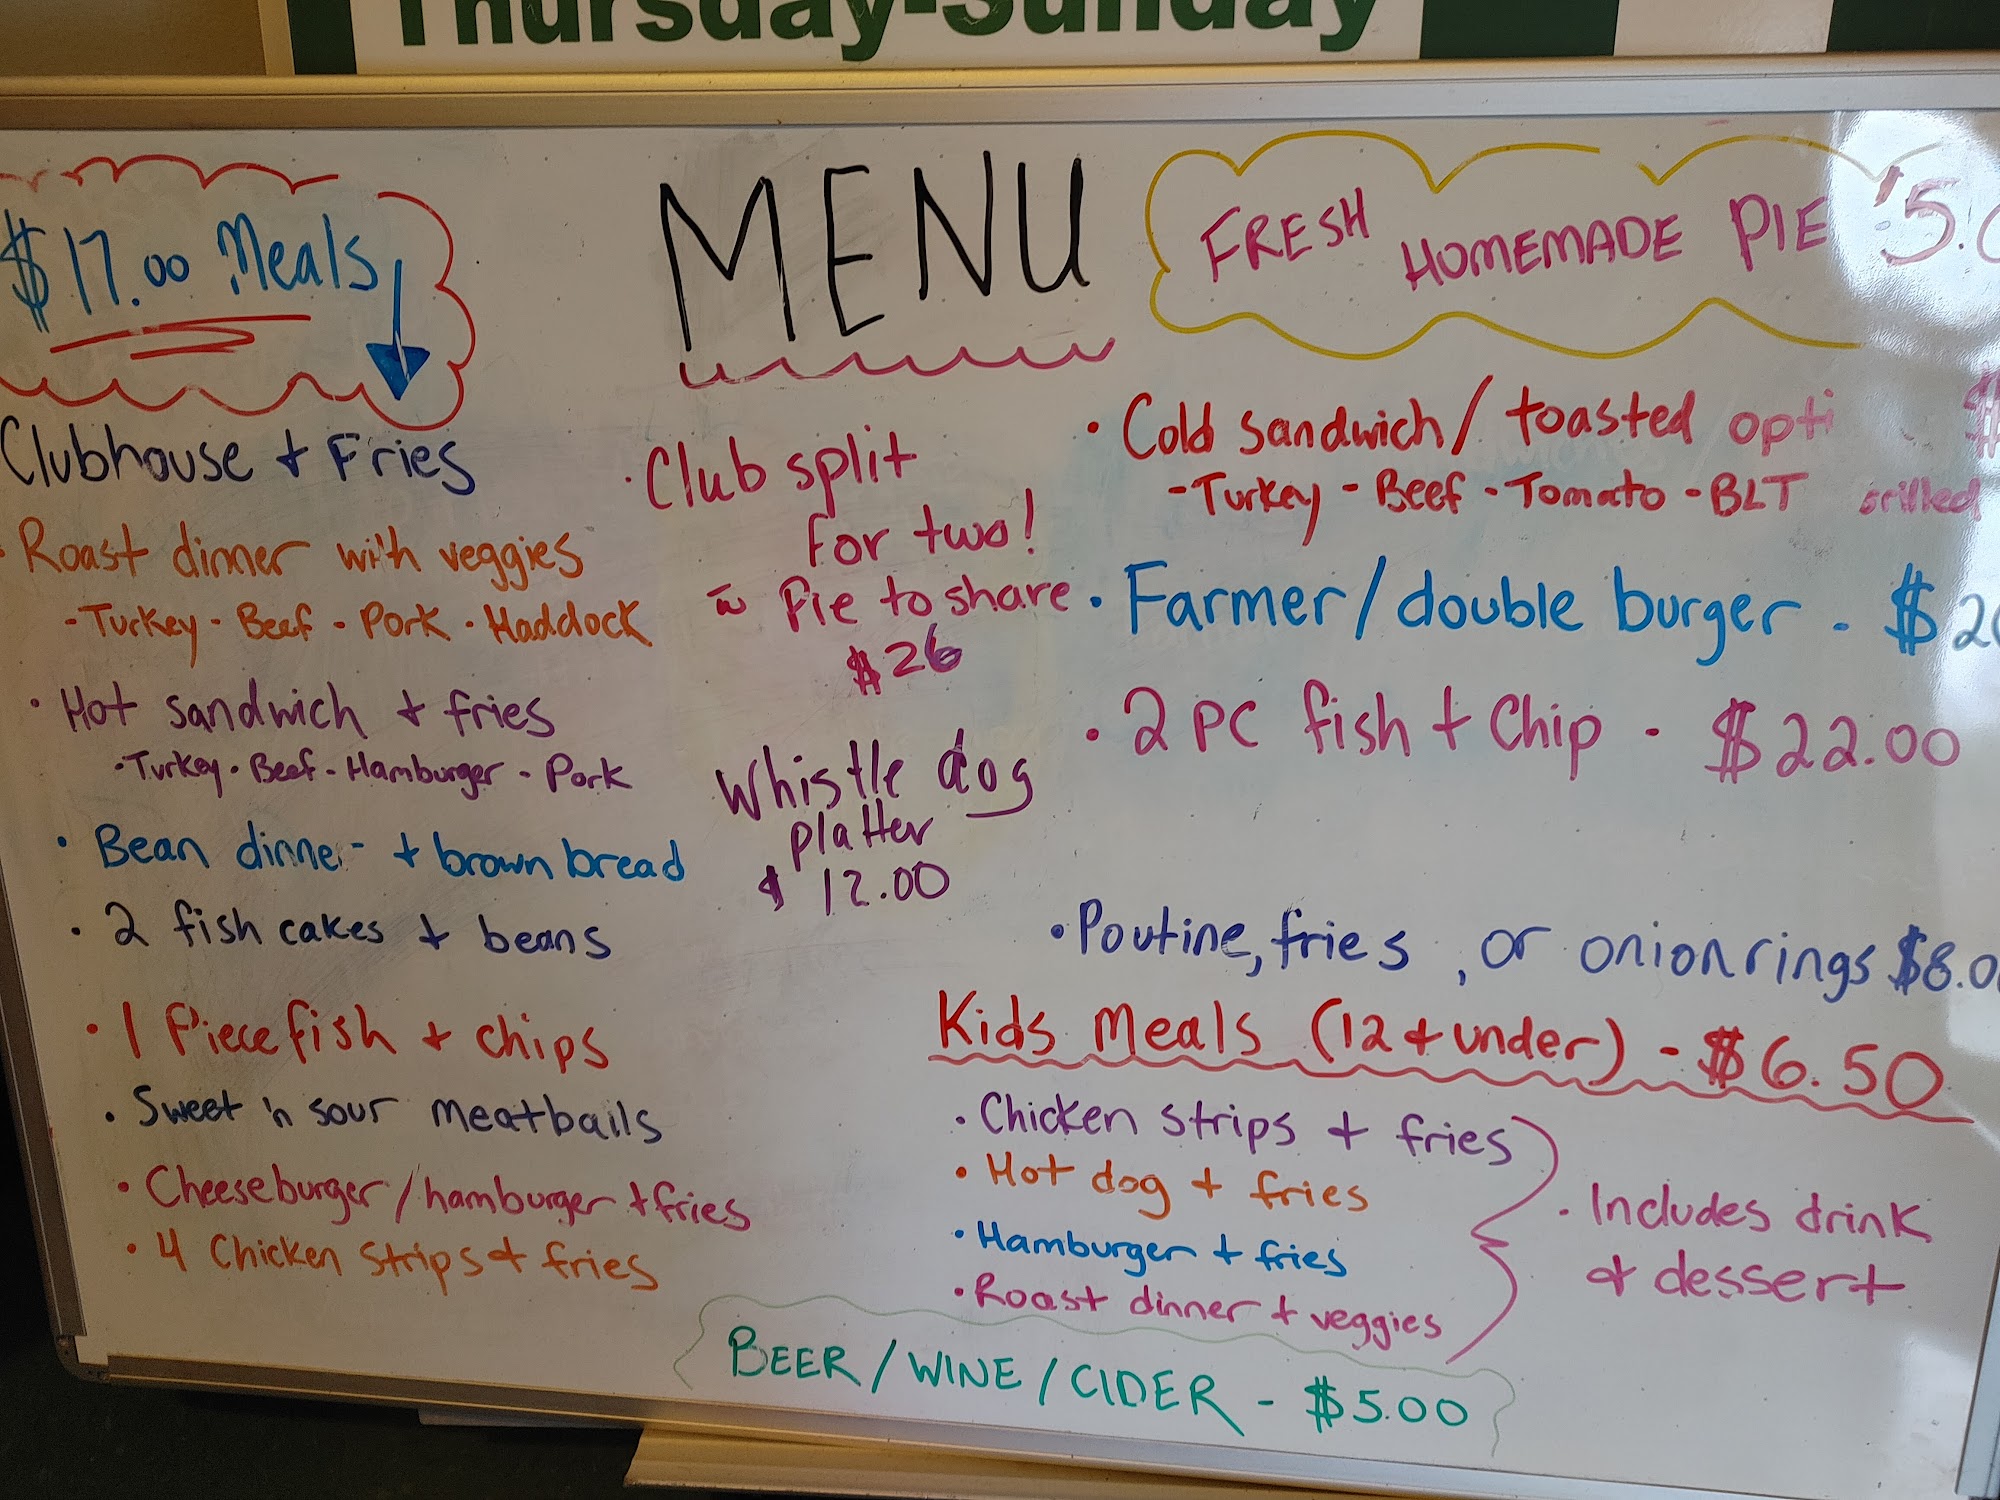 Thursday-Sunday
MENU
$17.00 Meals
Clubhouse + Fries
• Roast dinner with veggies
- Turkey - Beef - Pork - Haddock
• Hot sandwich + fries
• Turkey • Beef - Hamburger - Pork
• Bean dinner + brown bread
• 2 fish cakes + beans
• 1 Piece fish + chips
• Sweet 'n sour meatballs
• Cheeseburger/hamburger + fries
• 4 Chicken strips + fries
• Club split
for two!
Pie to share
$26
Whistle dog
platter
$12.00
FRESH HOMEMADE PIE $5.0
• Cold sandwich/toasted opti $
- Turkey - Beef - Tomato - BLT grilled
• Farmer/double burger - $20
• 2 PC fish + Chip - $22.00
• Poutine, fries, or onion rings $8.0
Kids Meals (12 + under) - $6.50
• Chicken strips + fries
• Hot dog + fries
• Hamburger + fries
• Roast dinner + veggies
• Includes drink
+ dessert
BEER/WINE/CIDER - $5.00